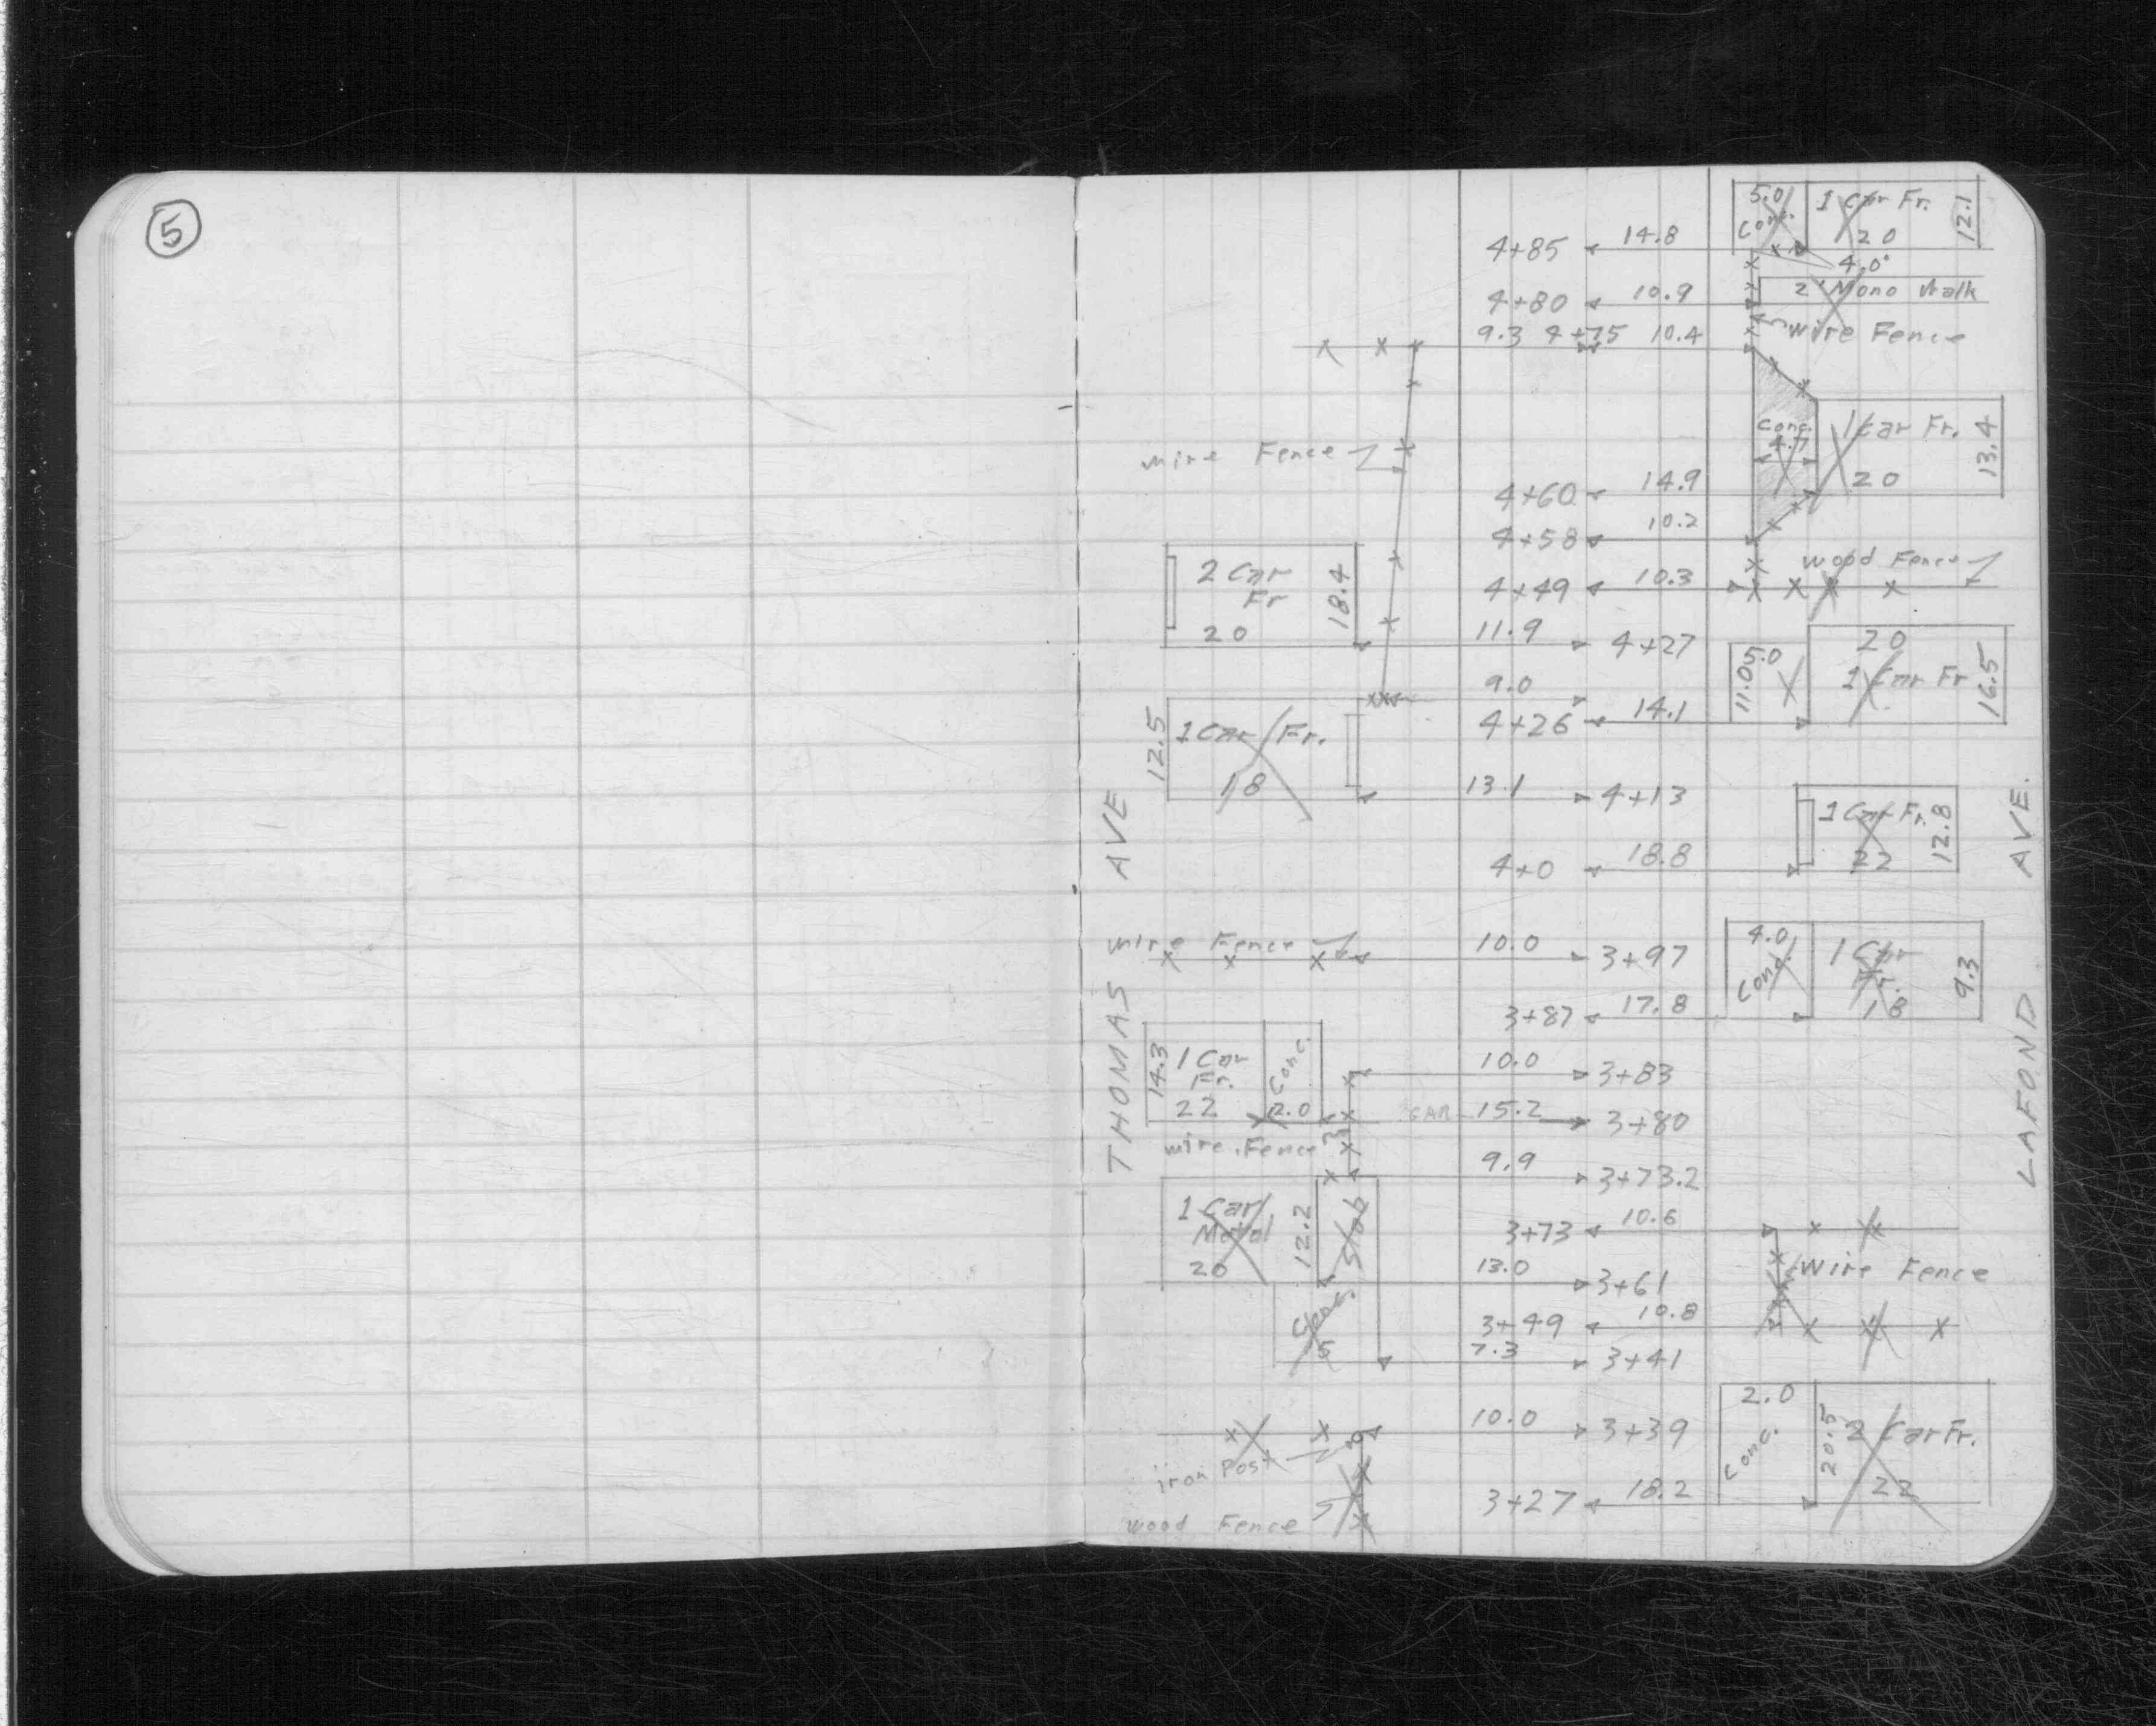 5
5.0 1 Car Fr. 12.1
Conc.
4+85 14.8 20
4.0'
4+80 10.9 2' Mono Walk
9.3 4+75 10.4 Wire Fence
Conc. 1 Car Fr. 13.4
4.7
wire Fence
4+60 14.9 20
4+58 10.2
wood Fence
2 Car 18.4 4+49 10.3
Fr
20 11.9 4+27 20
5.0 11.0 1 Car Fr 16.5
9.0
12.5 1 Car Fr. 4+26 14.1
18 13.1 4+13
1 Car Fr. 12.8
4+0 18.8 22
wire Fence 10.0 3+97 4.0 1 Car 9.3
Conc. Fr.
3+87 17.8 18
14.3 1 Car Conc. 10.0 3+83
Fr.
22 2.0 GAR 15.2 3+80
wire Fence
9.9 3+73.2
1 Car 12.2 Slab 3+73 10.6
Metal
20 13.0 3+61 Wire Fence
Conc. 3+49 10.8
5 7.3 3+41
10.0 3+39 2.0 20.5 2 Car Fr.
iron Post Conc.
3+27 18.2 22
wood Fence
THOMAS AVE
LAFOND AVE.